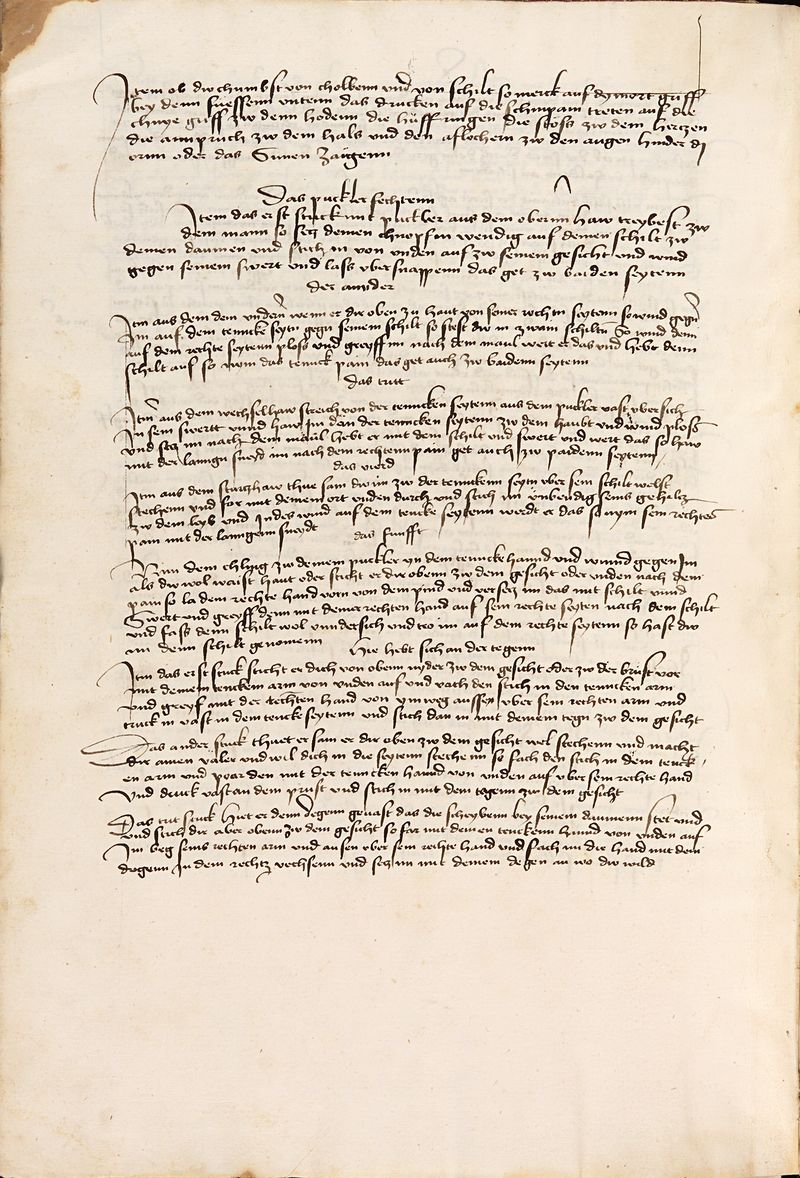 Item ob dw chumbst von cholbenn und von schilt so merck auf dy mort griff
bey denn fuessenn unterm das drucken auf die schinpain treten auf die
chnye griff zw denn hodenn die hüff ringen die stöss zw dem hertzen
die annpruch zw dem hals und den aflöchern zw den augen hinder di
ornn oder das Sinen zaygenn
Das puckler fechtenn
Item das erst stuck mit puckler aus dem obernn haw treybest zw
dem mann so setz deinen chnopf in wendig auf deinen schilt zw
deinen daumen und stich in von unden auf zw seinem gesicht und wind
gegen seinem swert und lass uber snappenn das get zw baiden seytenn
der annder
Itm aus dem dem undern wenn er dir oben zu haut von seiner rechtn seytenn so wind gegn
Im auf dem tenncke seytn gegn seinem schilt so stest dw in zwain schiltn So wind denn
auf dem rechte seytenn ploss und greyff im nach dem maul wert er das und hebt denn
schilt auf so nym das tennck pain das get auch zw baidenn seytenn
das tritt
Itm aus dem wechselhaw streich von der tenncken seytenn aus dem puckler vast ubersich
In sein swertt unnd haw im dan der tenncken seytenn zw dem haubt und wind ploss
und stos im nach dem maul hebt er mit dem schilt und swert und wert das so haw
mit der lanngn sneyd im nach dem rechtenn pain get auch zw paidenn seytenn
das vierd
Itm aus dem sturtzhaw thue sam dw im zw der tennckenn seytn uber sein schilt welst
stechenn und far mit deinem ort unden durch und stich im inbendig seins schiltz
zw dem leyb und Indes wind auf dem tencke seytenn werdt er das so nym sein rechtes
pain mit der lanngenn sneydt
das funfft
Nim dem chling zw deinem puckler yn dem tenncke hannd und wind gegen Im
als dw wol waist haut oder sticht er dir obenn zw dem gesicht oder unden nach dem
pain so la dem rechte hand varn von dem pind und versetz im das mit schilt unnd
Swert und greyff denn mit deiner rechten hand auf sein rechte seyten nach dem schilt
und fass denn schilt wol unndersich und dro im auf dem rechte seytenn so hast dw
im denn schilt genomenn
Hie hebt sich an der tegenn
Itm das erst stuck sticht er dich von obenn nyder zw dem gesicht oder zw der brust var
mit deinem tenckem arm von unden auf und vach den stich in den tenncken arm
und greyf mit der rechten hand von ynweg aussen uber sein rechten arm und
truck in vast in dem tenck seytenn und stich dan in mit deinem tegn zw dem gesicht
Das ander stuck Thuet er sam er dir oben zw dem gesicht wel stechenn und macht
dir ainen väler und wil dich in die seytenn stechenn so fach den stich in dem tenck
en arm und prar den mit der tenncken hannd von unden auf uber sein rechte hand
Und druck vast an dem prust und stich in mit dem tagenn zw dem gesicht
Das trit stuck Hiet er dem degenn gevast das die scheybenn bey seinem daumenn stet und
Und stich dir aber obenn zw dem gesicht so far mit deinen tenckenn hannd von unden auf
In beg seins rechten arm und aussen uber sein rechte hand und fach im die hand mit dem
degenn In dem rechtz uechsenn und setz im mit deinem degen an wo dw wild